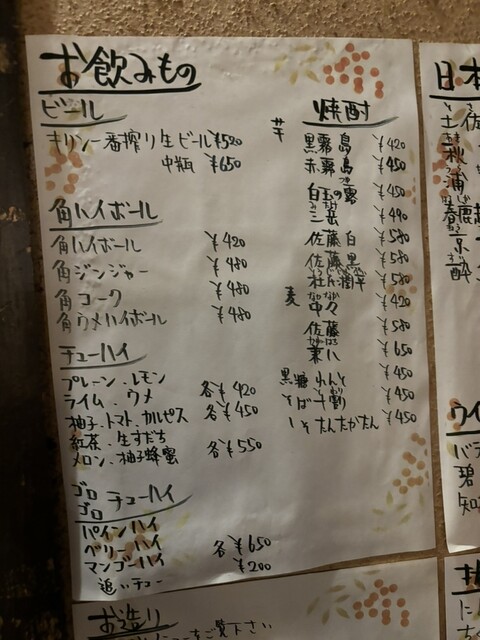 お飲みもの
ビール
キリン一番搾り生ビール ¥520
中瓶 ¥650
角ハイボール
角ハイボール ¥420
角ジンジャー ¥480
角コーク ¥480
角ウメハイボール ¥480
チューハイ
プレーン・レモン
ライム・ウメ 各¥420
柚子・トマト・カルピス 各¥450
紅茶・生すだち
メロン・柚子蜂蜜 各¥550
ゴロゴロチューハイ
パインハイ
ベリーハイ
マンゴーハイ 各¥650
追いチュー ¥200
焼酎
芋 黒霧島 ¥420
赤霧島 ¥450
白玉の露 ¥450
三岳 ¥490
佐藤白 ¥580
佐藤黒 ¥580
¥580
麦 中々 ¥420
佐藤 ¥580
¥650
黒糖 れんと ¥450
そば ¥450
しそ たんたかたん ¥450
お造り
ご覧下さい
日本
土佐
秋
浦
春鹿
京
酔
ウイ
バラ
碧
知